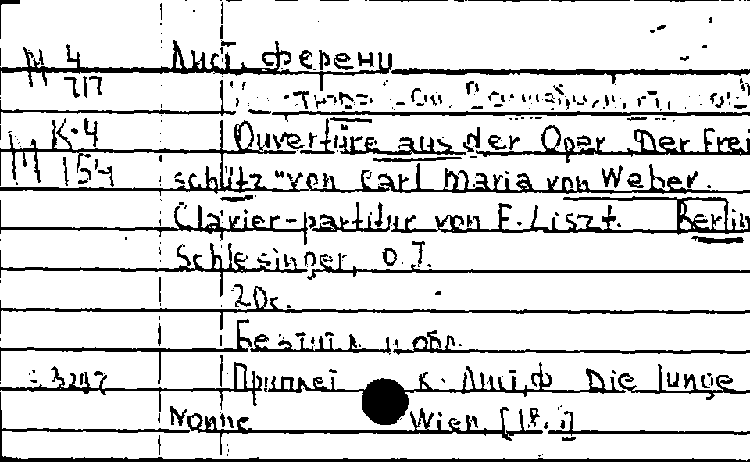 М 4 Лист, Ференц
717
К-4 Ouvertüre aus der Oper „Der Frei
М 154 schütz" von Carl Maria von Weber.
Clavier-partitur von F. Liszt. Berlin
Schlesinger, o. J.
20с.
Без тит. л. и обл.
Приплет к. Лист, Ф Die Junge
Nonne Wien